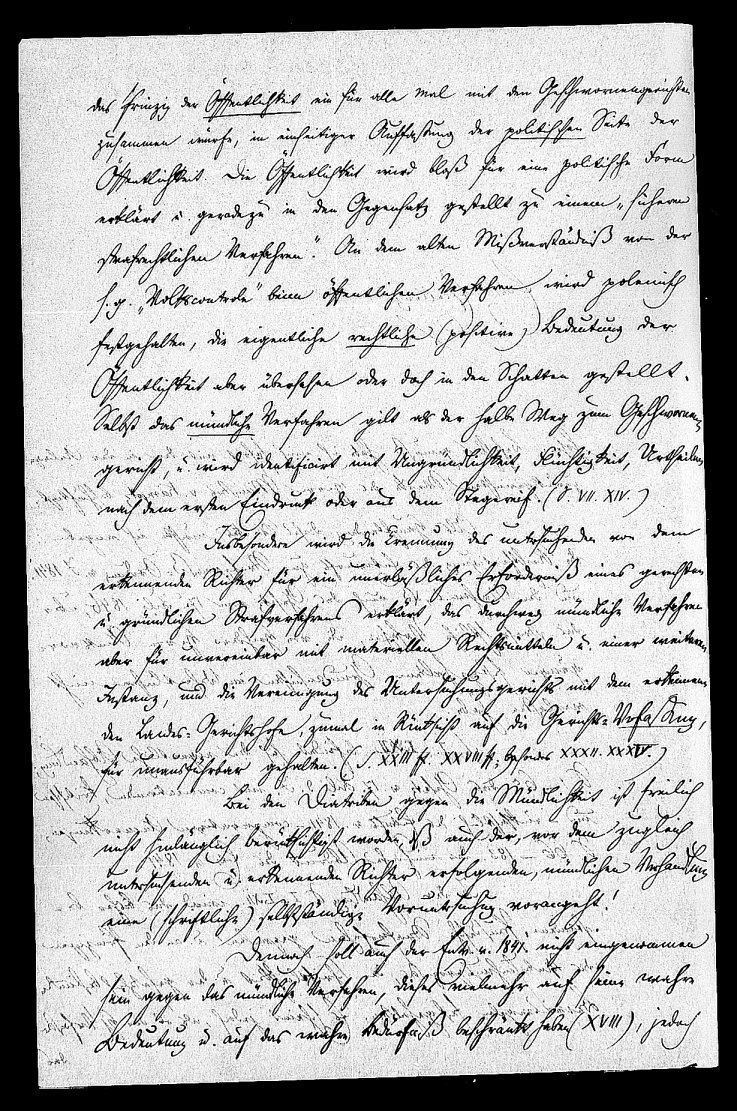 das Prinzip der Öffentlichkeit ein für alle Mal mit den Geschwornengerichten
zusammen würfe, in einseitiger Auffassung der politischen Seite der
Öffentlichkeit. Die Öffentlichkeit wird bloß für eine politische Form
erklärt u. geradezu in den Gegensatz gestellt zu einem „sicheren
strafrechtlichen Verfahren“. An dem alten Mißverständniß von der
s.g. „Volkscontrole“ beim öffentlichen Verfahren wird polemisch
festgehalten, die eigentliche rechtliche (positive) Bedeutung der
Öffentlichkeit aber übersehen oder doch in den Schatten gestellt.
Selbst das mündliche Verfahren gilt als der halbe Weg zum Geschwornen-
gericht, u. wird identificirt mit Ungründlichkeit, Flüchtigkeit, Urtheilen
nach dem ersten Eindruck oder aus dem Stegereif. (S. VII. XIV.)
Insbesondere wird die Trennung des untersuchenden von dem
erkennenden Richter für ein unerläßliches Erforderniß eines gerechten
u. gründlichen Strafverfahrens erklärt, das durchweg mündliche Verfahren
aber für unvereinbar mit materiellen Rechtsmitteln u. einer weiteren
Instanz, und die Vereinigung des Untersuchungsgerichts mit dem erkennen-
den Landes-Gerichtshofe, zumal in Rücksicht auf die Gerichts-Verfassung,
für unausführbar gehalten. (S. XXIII ff. XXVIII ff., besonders XXXII. XXXIV.)
Bei den Diatriben gegen die Mündlichkeit ist freilich
nicht hinlänglich berücksichtigt worden, daß auch der, vor dem zugleich
untersuchenden u. erkennenden Richter erfolgenden, mündlichen Verhandlung
eine (schriftliche) selbstständige Voruntersuchung vorangeht!
Dennoch soll auch der Entw. v. 1841. nicht eingenommen
sein gegen das mündliche Verfahren, dieses vielmehr auf seine wahre
Bedeutung u. auf das wahre Bedürfniß beschränkt haben (XVIII), jedoch